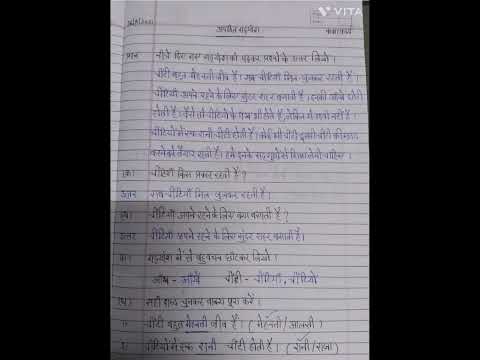 VITA
अपठित गद्यांश
कक्षाकार्य
प्रश्न नीचे दिए गए गद्यांश को पढ़कर प्रश्नों के उत्तर लिखो।
चींटी बहुत मेहनती जीव है। सब चींटियाँ मिल जुलकर रहती हैं।
चींटियाँ अपने रहने के लिए सुंदर शहर बनाती हैं। इनकी आँखें छोटी
होती हैं। वैसे तो चींटियों के पंख भी होते हैं, लेकिन में नहीं हैं।
चींटियों में एक रानी चींटी होती है। कोई भी चींटी दूसरी चींटी की मदद
करने को तैयार रहती है। हमें इनके सद्गुणों से शिक्षा लेनी चाहिए।
(क) चींटियाँ किस प्रकार रहती हैं?
उत्तर सब चींटियाँ मिल जुलकर रहती हैं।
(ख) चींटियाँ अपने रहने के लिए क्या बनाती हैं?
उत्तर चींटियाँ अपने रहने के लिए सुंदर शहर बनाती हैं।
(ग) गद्यांश में से बहुवचन छाँटकर लिखो।
आँख - आँखें चींटी - चींटियाँ, चींटियों
(घ) सही शब्द चुनकर वाक्य पूरा करें।
चींटी बहुत मेहनती जीव है। (मेहनती/आलसी)
चींटियों में एक रानी चींटी होती है। (रानी/राजा)